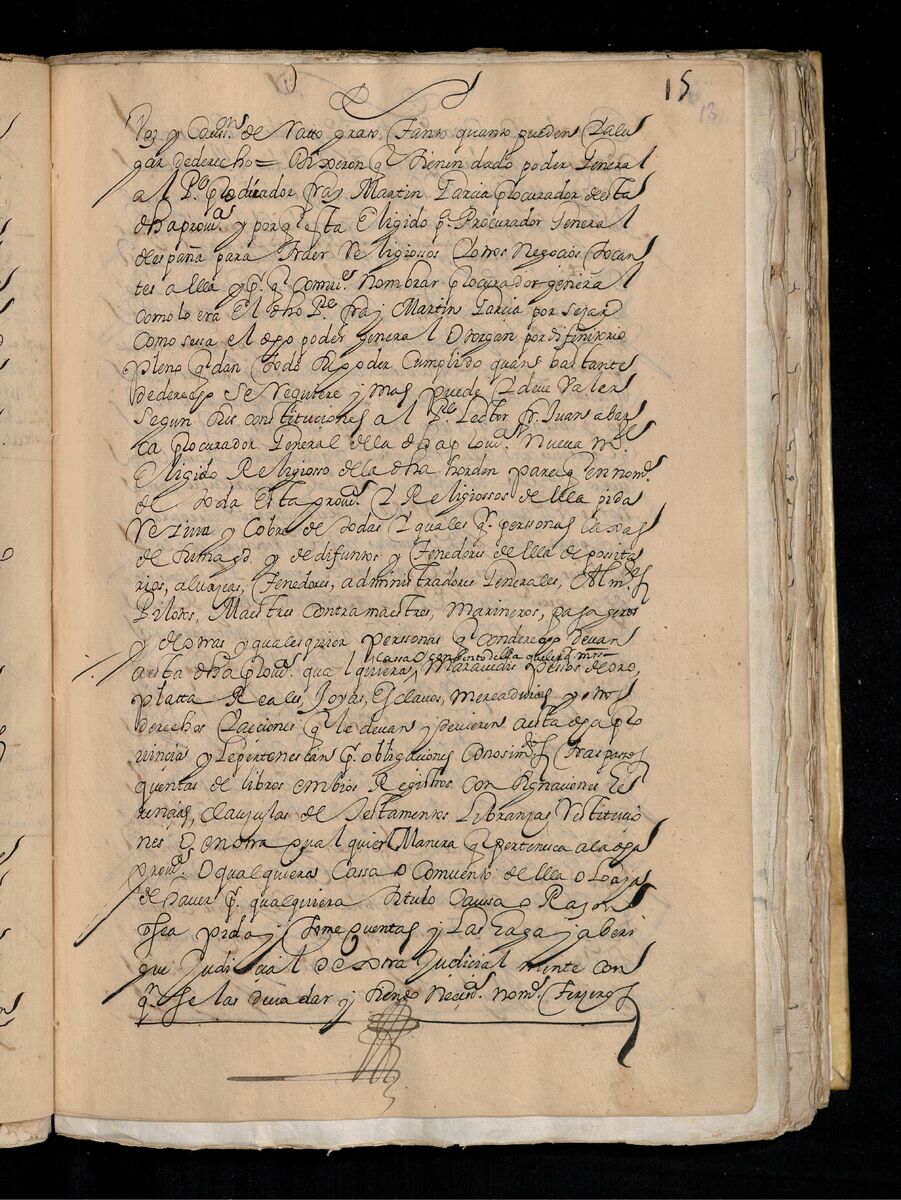 15
13
Voz y Cauon. de Ratto grato, tanto quanto pueden y alu
gar de derecho = Dixeron q tienen dado poder General
al Pe. Predicador fray Martin Garcia procurador de esta
dha prouia. y por q esta Eligido pr. Procurador General
de españa para traer Religiossos y otros Negocios tocan
tes a ella y pr. q comvie. nombrar procurador general
como lo era El dho Pe. fray Martin Garcia por dejar
como sera el dho poder general Otorgan por difinitorio
pleno q dan todo su poder Cumplido quan bastante
de derecho se requiere y mas puede y deve valer
segun sus constituciones al Pe. Lector fr. Juan
procurador General de la dha prouia. nueva mte.
Eligido Religiosso de la dha horden para q en nome.
de toda Esta proua. y Religiossos de ella pida
Reziva y Cobre de todas y quales qr. personas
de su magd. y de difuntos y tenedores de ella deposita
rios, aluaçeas, tenedores, administradores Generales, Almes.
Pilotos, Maestres contramaestres, Marineros, pasageros
y de otras y quales quier perssonas q con derecho devan
a esta dha proua. qual quiera Maravedis pessos de oro
cassa o convento della
platta Reales, Joyas, Esclavos, Mercadurias y otros
derechos y acciones q le devan y devieren a esta dha pro
vincia y le pertenescan pr. obligaciones Conosimtos. traspassos
quentas de libros cambios Registros con signaciones he
rencias, clausulas de testamentos Libranzas Restitucio
nes O en otra qual quier Manera q pertenesca a la dha
proua. O qualquiera Cassa o Comvento de ella o haya
de haver pr. qualquiera titulo causa o Razon
q sea pida y tome quentas y las haga y aberi
gue Judicial o extra Judicial mente con
qn. se las deva dar y siendo necesso. nome. terzeros